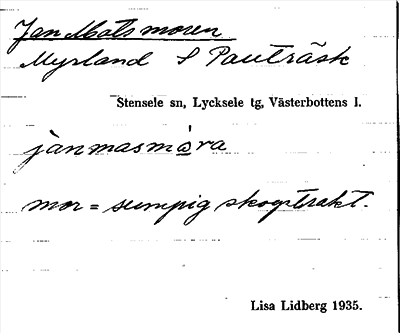 Jan Matsmoren
Myrland S Pauträsk
Stensele sn, Lycksele tg, Västerbottens l.
jànmasmṑ̱ra
mor = sumpig skogstrakt.
Lisa Lidberg 1935.